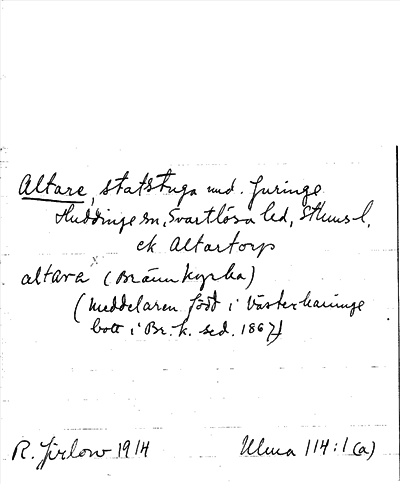 Altare, statstuga und. Juringe
Huddinge sn, Svartlösa hd, Sthms l.
ek Altartorp
altara (Brännkyrka)
(meddelaren född i Västerhaninge
bott i Br.k. sed. 1867)
R. Jirlow 1914 Ulma 114:1 (a)